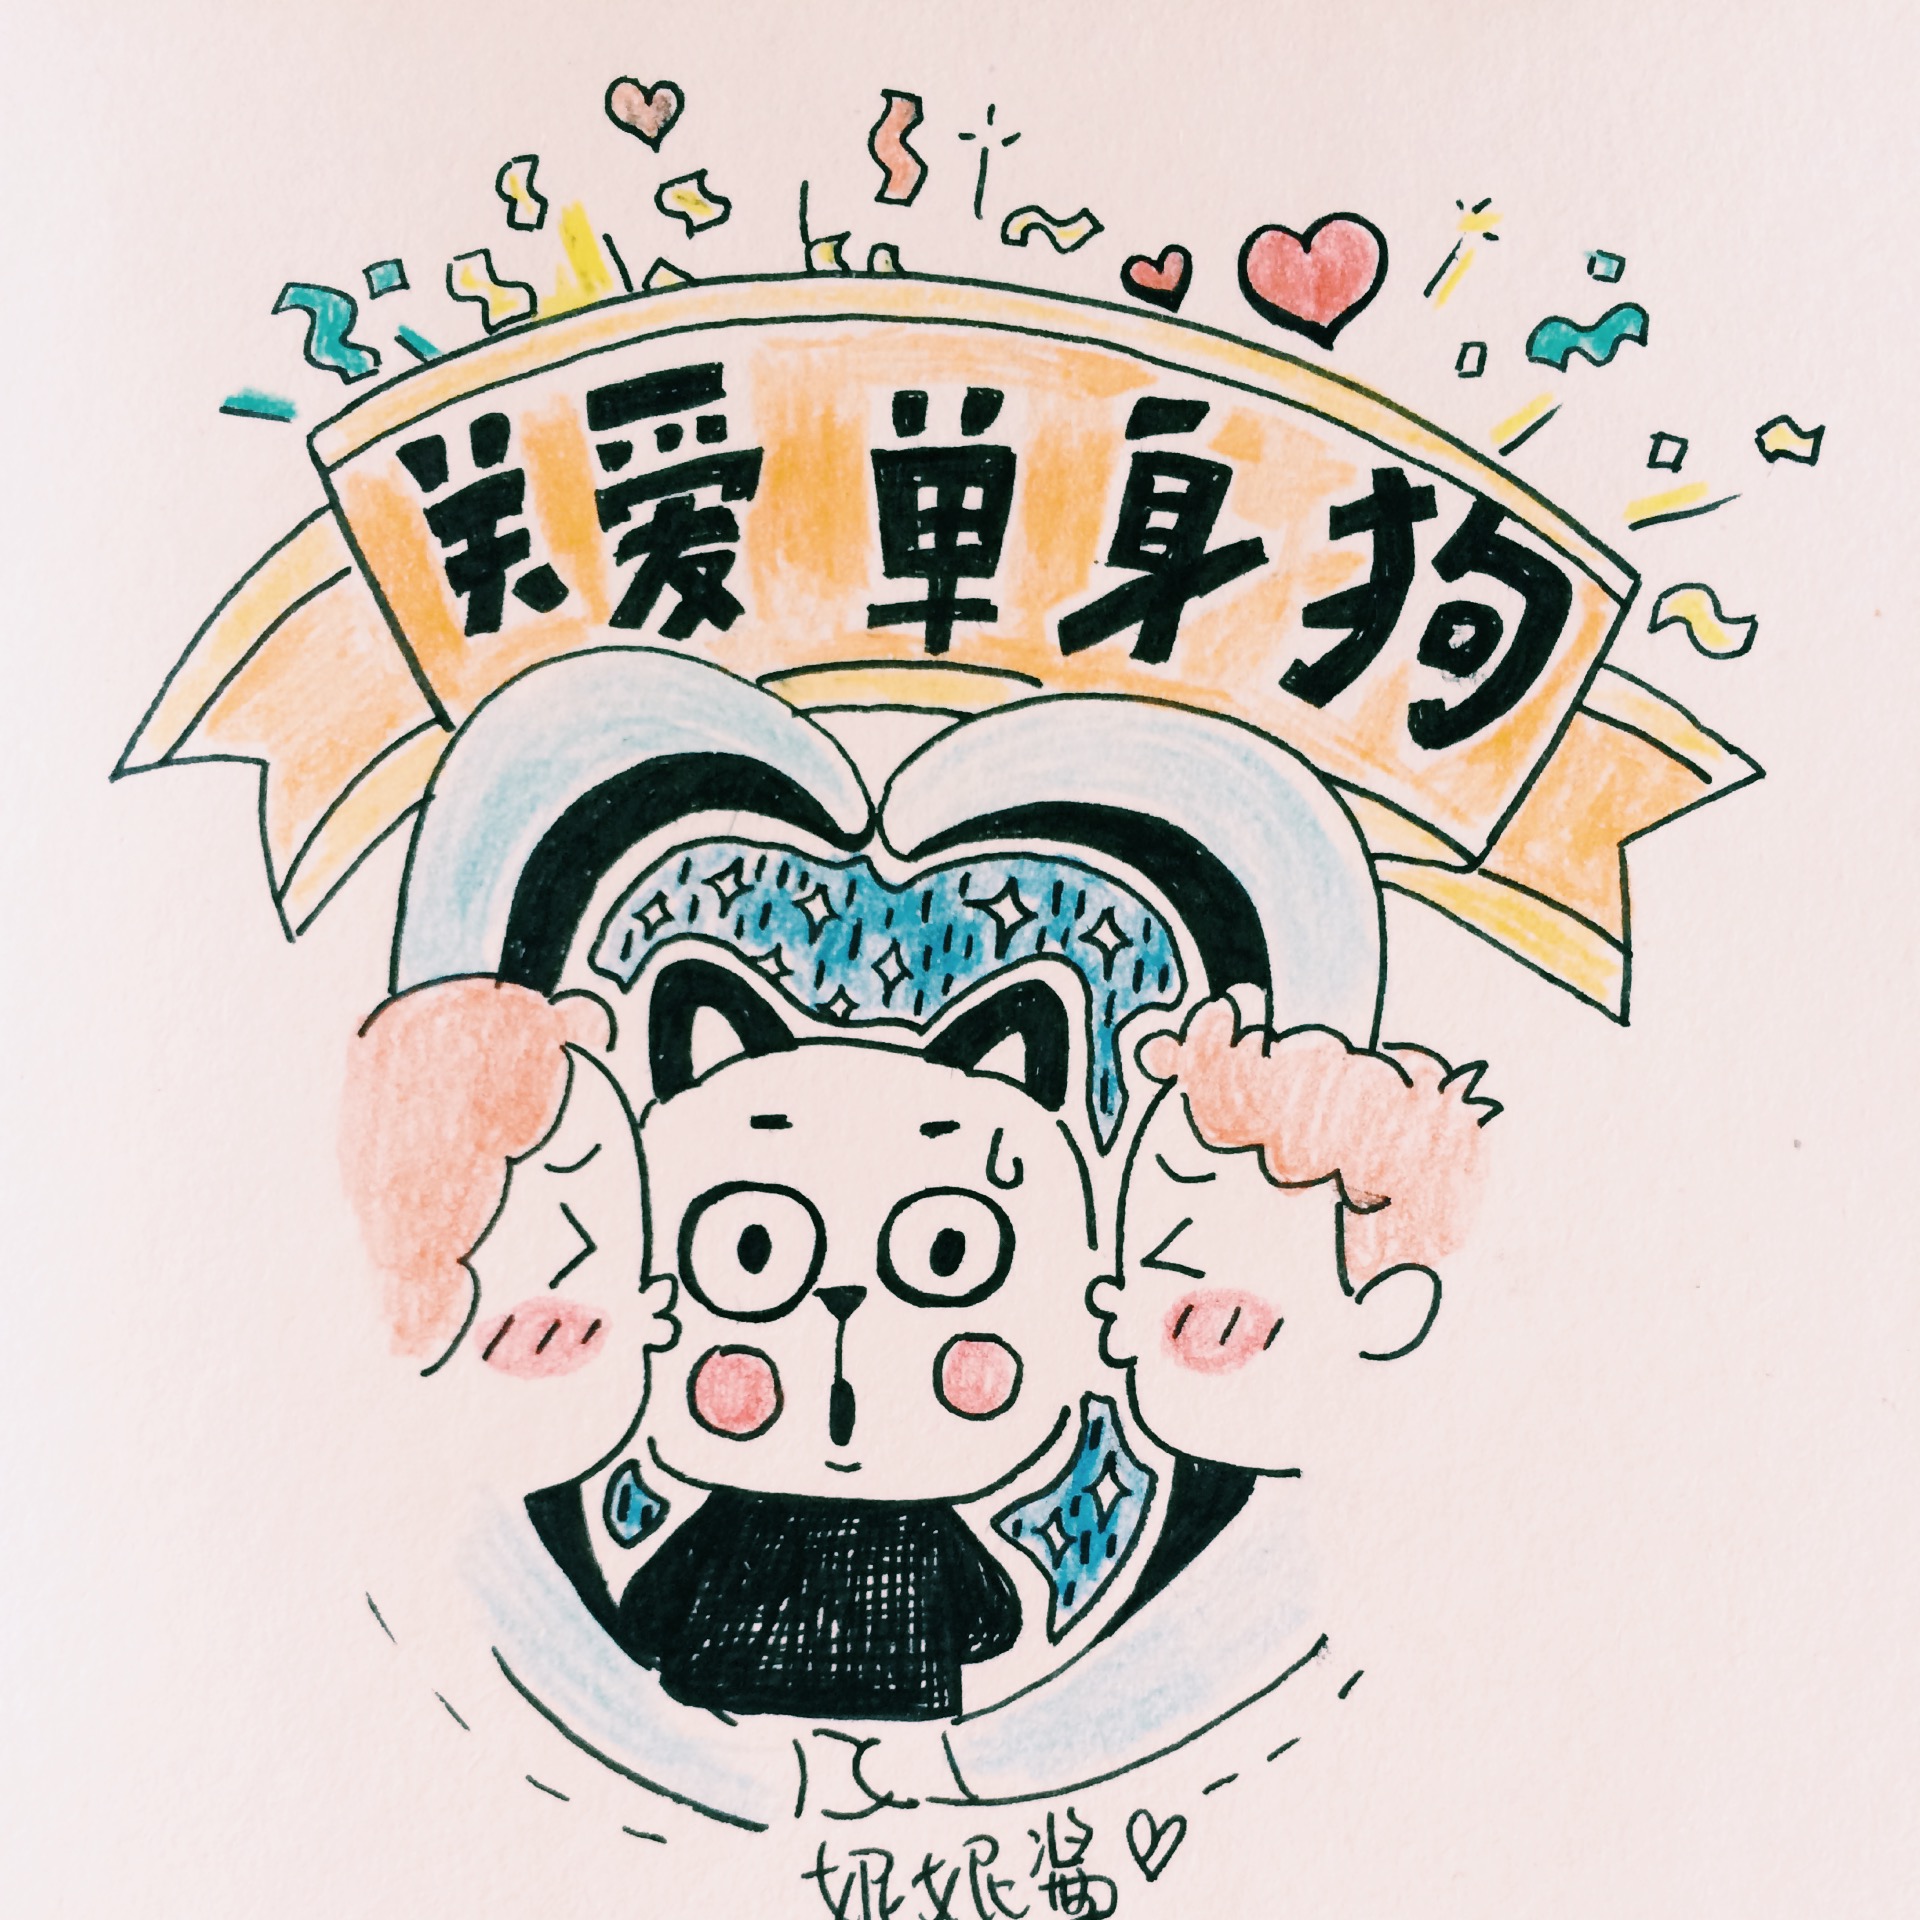 关爱单身狗
妮妮酱